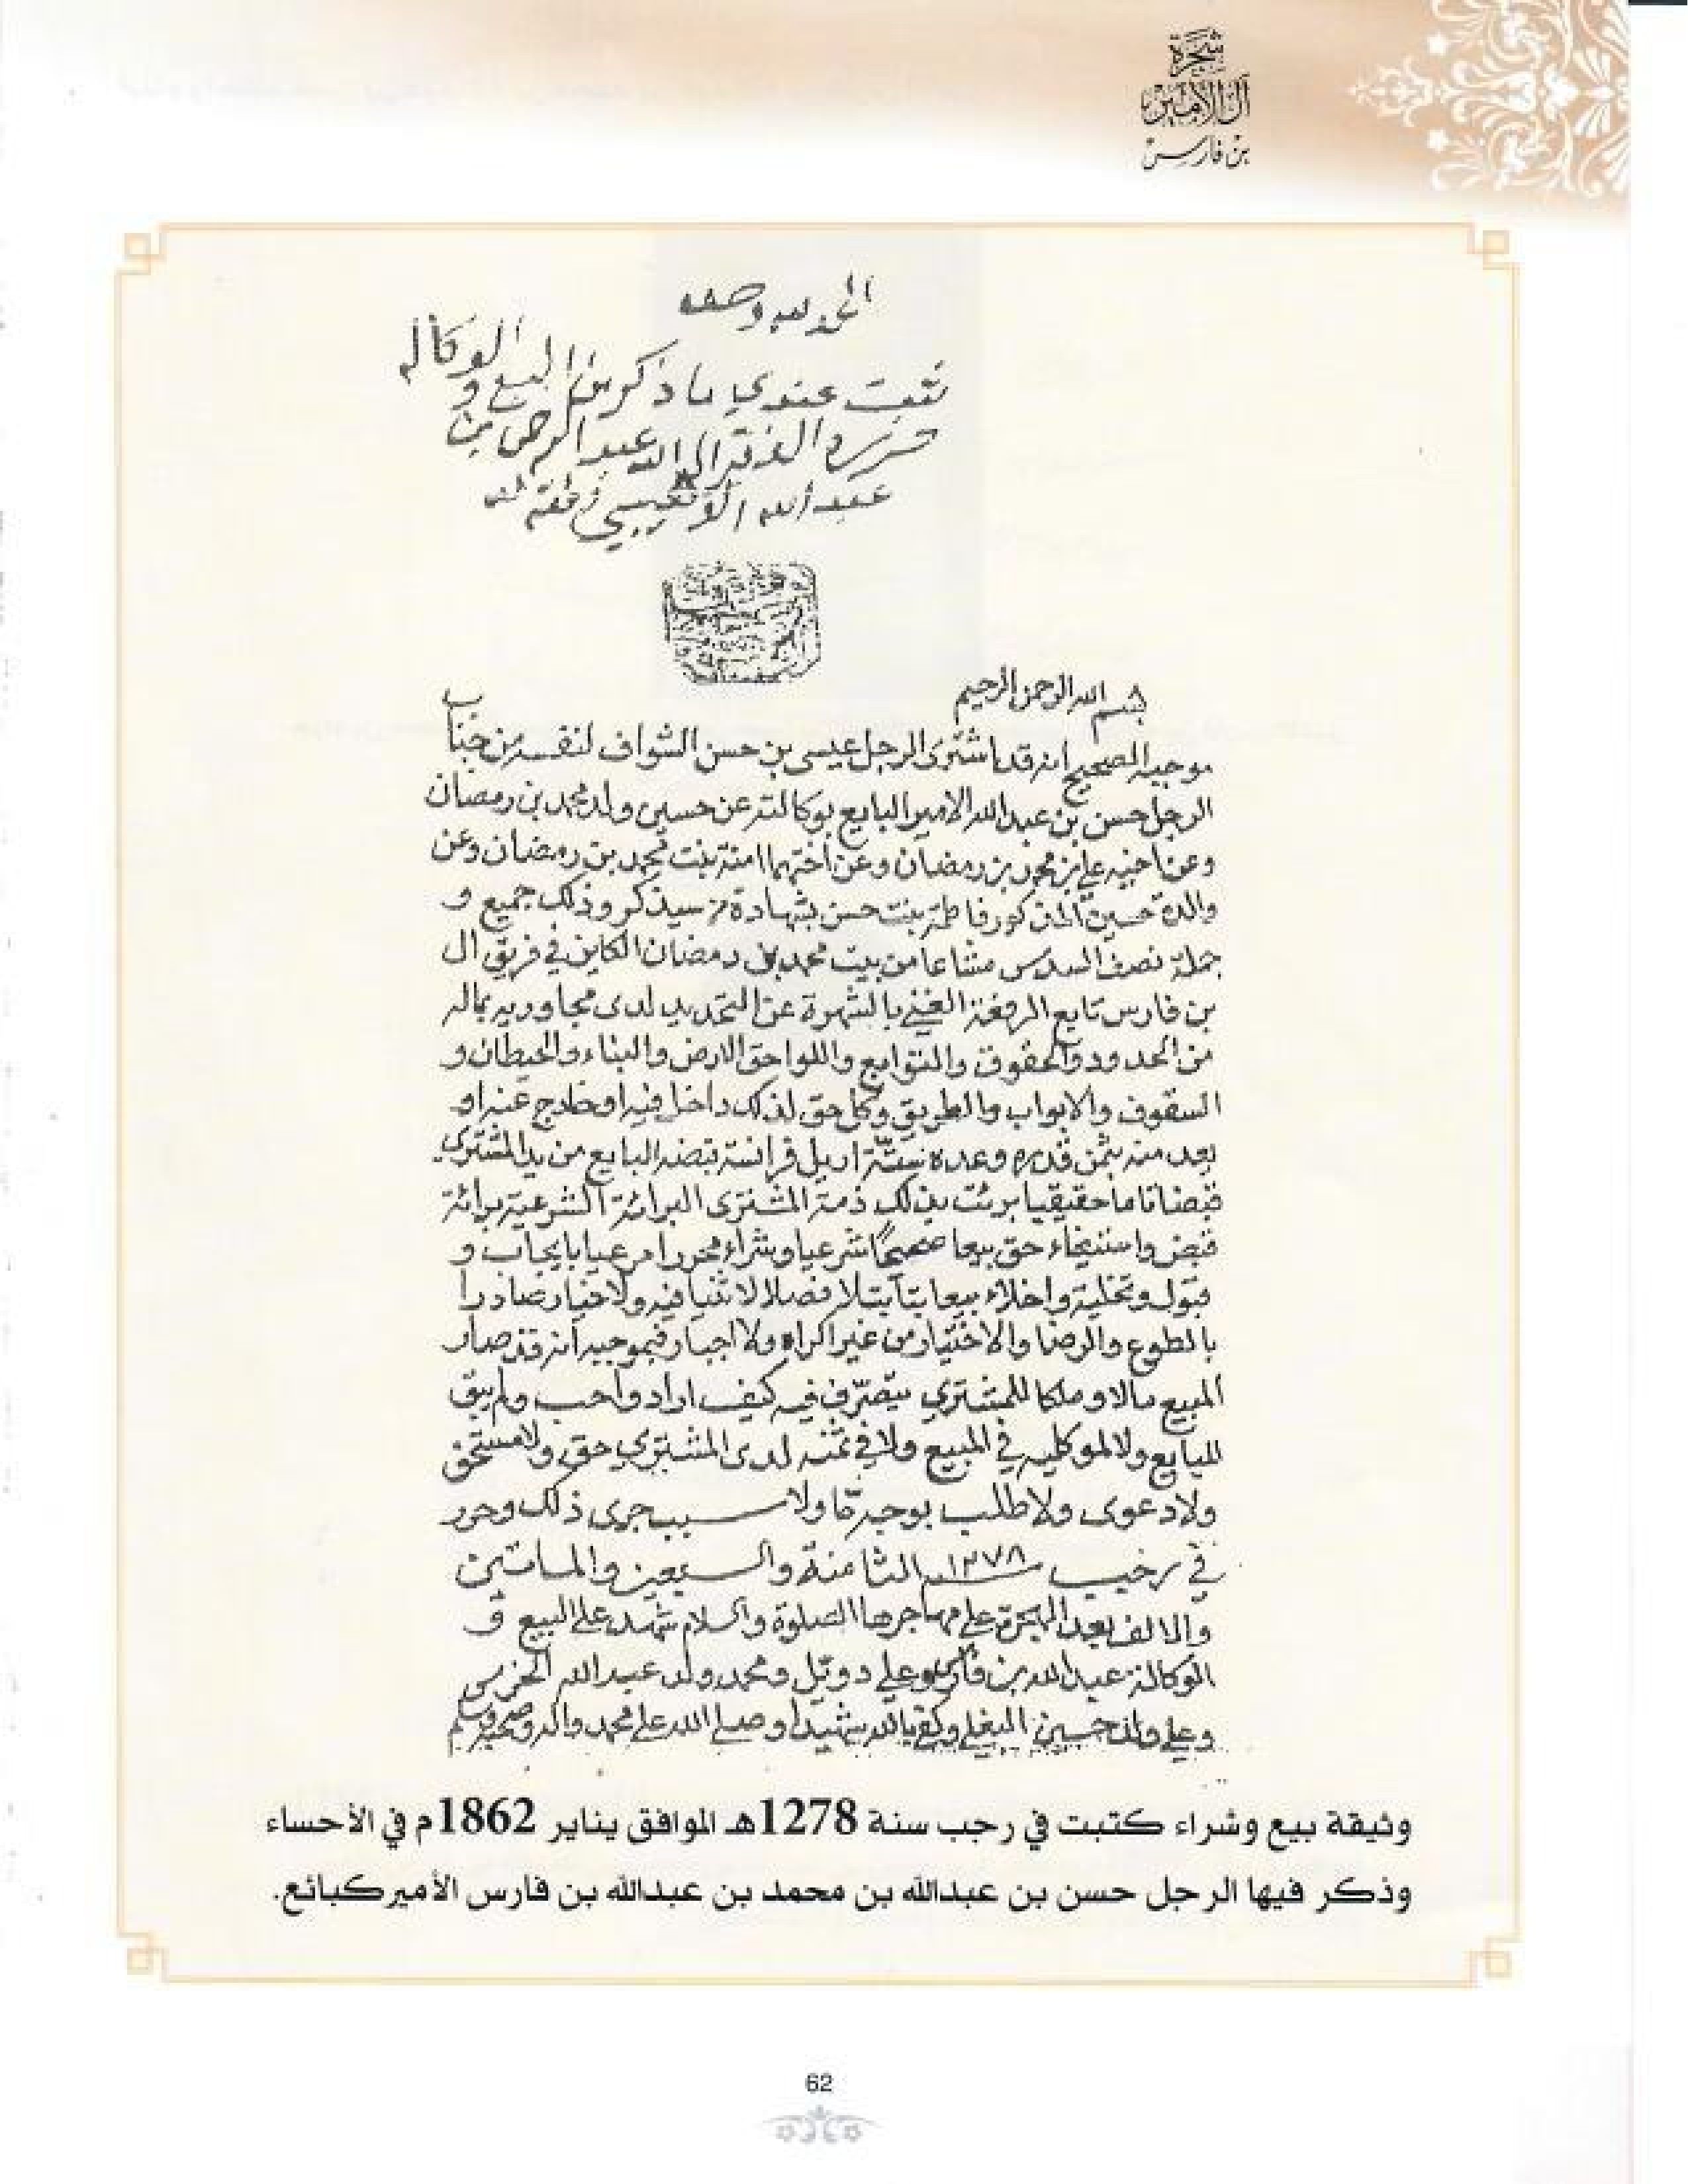 شجرة
آل الأمير
بن فارس
الحمد لله وحده
ثبت عندي ما ذكر من البيع والوكالة
حرره الفقير الى الله عبد الرحمن بن
عبد الله الوهيبي
بسم الله الرحمن الرحيم
موجبه الصحيح انه قد اشترى الرجل عيسى بن حسن الشواف لنفسه من جناب
الرجل حسن بن عبد الله الامير البايع بوكالته عن حسين ولد محمد بن رمضان
وعن اخيه علي بن محمد بن رمضان وعن اختهما امنة بنت محمد بن رمضان وعن
والدة حسين المذكور فاطمة بنت حسن بشهادة من سيذكر وذلك جميع و
جملة نصف السدس مشاعا من بيت محمد بن رمضان الكاين في فريق ال
بن فارس تابع الرفعة الغني بالشهرة عن التحديد لدى مجاوريه بماله
من الحدود والحقوق والتوابع واللواحق الارض والبناء والحيطان و
السقوف والابواب والطريق وكل حق لذلك داخل فيه او خارج عنه او
يعد منه بثمن قدره وعده ستة اريل فرانسة قبضه البايع من يد المشتري
قبضا تاما حقيقيا برئت بذلك ذمة المشترى البرائة الشرعية برائة
قبض واستيفاء حق بيعا صحيحا شرعيا وشراء محررا مرعيا بايجاب و
قبول وتخلية واخلاء بيعا بتا بتلا فصلا لا ثنيا فيه ولا خيار صادرا
بالطوع والرضا والاختيار من غير اكراه ولا اجبار فبموجبه انه قد صار
المبيع مالا وملكا للمشتري يتصرف فيه كيف اراد واحب ولم يبق
للبايع ولا لموكليه في المبيع ولا في ثمنه لدى المشتري حق ولا مستحق
ولا دعوى ولا طلب بوجه ما ولا سبب جرى ذلك وحرر
في رجب سنة ١٢٧٨ الثامنة والسبعين والماتين
والالف بعد الهجرة على مهاجرها الصلوة والسلام شهد على البيع و
الوكالة عبد الله بن فارس وعلي دويل ومحمد ولد عبد الله الخرس
وعلي ولد حسين البغلي وكفى بالله شهيدا وصلى الله على محمد واله وصحبه وسلم
وثيقة بيع وشراء كتبت في رجب سنة 1278هـ الموافق يناير 1862م في الأحساء
وذكر فيها الرجل حسن بن عبدالله بن محمد بن عبدالله بن فارس الأمير كبائع.
62